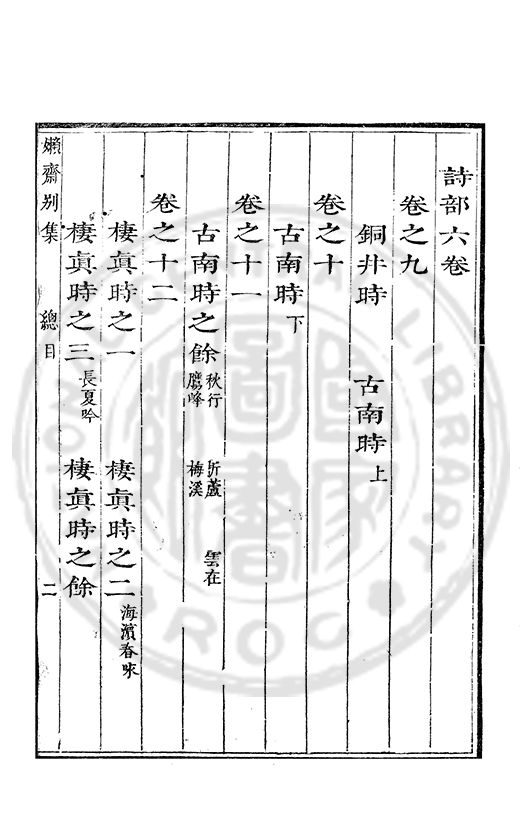 詩部六卷
卷之九
銅井時 古南時上
卷之十
古南時下
卷之十一
古南時之餘 秋行 峰 蘆 梅溪 雲在
卷之十二
棲眞時之一 棲眞時之二 海濱春咏
棲眞時之三 長夏吟 棲眞時之餘
嬾齋别集 總目 二